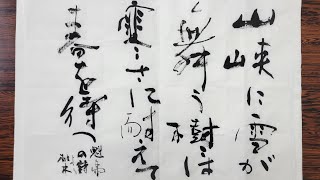 山峡に雪が
舞う樹は
寒さに耐えて
春を待つ
魁夷の詩